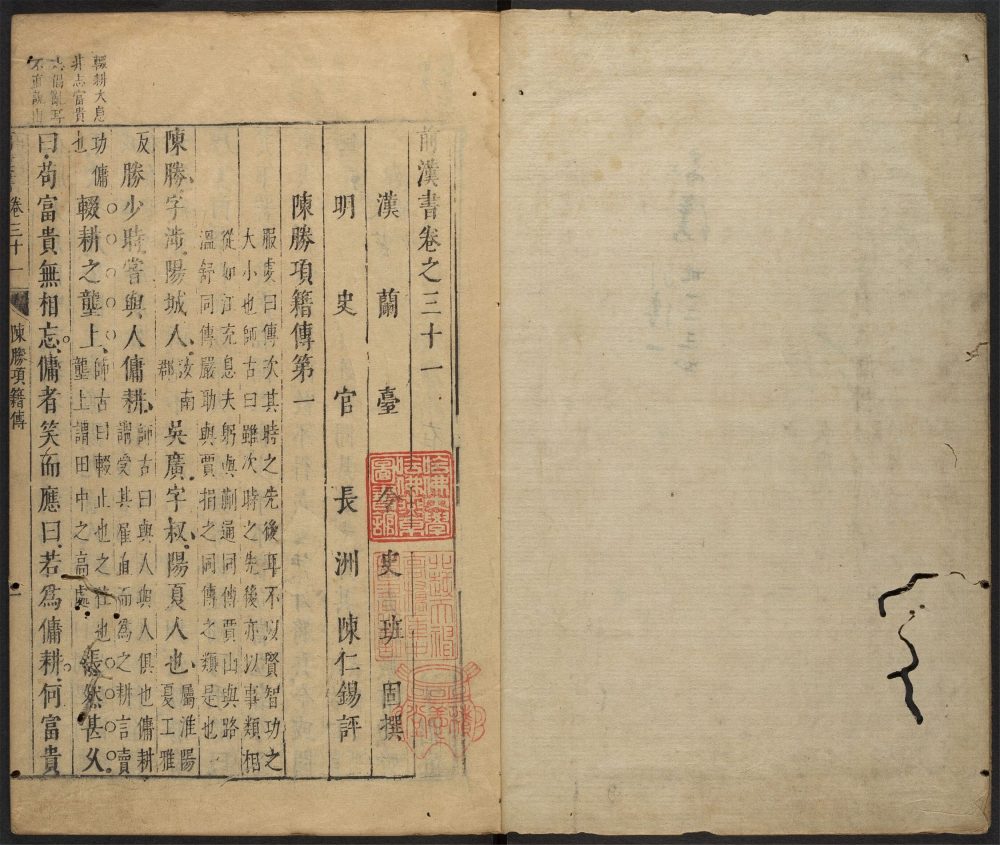 前漢書卷之三十一
漢 蘭臺令史班固撰
明 史官長洲陳仁錫評
陳勝項籍傳第一
服虔曰傳次其時之先後耳不以賢智功之
大小也師古曰雖次時之先後亦以事類相
從如江充息夫躬與蒯通同傳賈山與路
溫舒同傳嚴助與賈捐之同傳之類是也
陳勝字涉陽城人汝南郡吳廣字叔陽夏人也屬淮陽夏工雅
反勝少時嘗與人傭耕師古曰與人與人俱也傭耕謂受其雇直而為之耕言賣
功傭也輟耕之壟上師古曰輟止也之往也壟上謂田中之高處悵然甚久
曰苟富貴無相忘傭者笑而應曰若為傭耕何富貴
輟耕太息
其志富貴
卷三十一
陳勝項籍傳
一
哈佛大學哈佛燕京圖書館